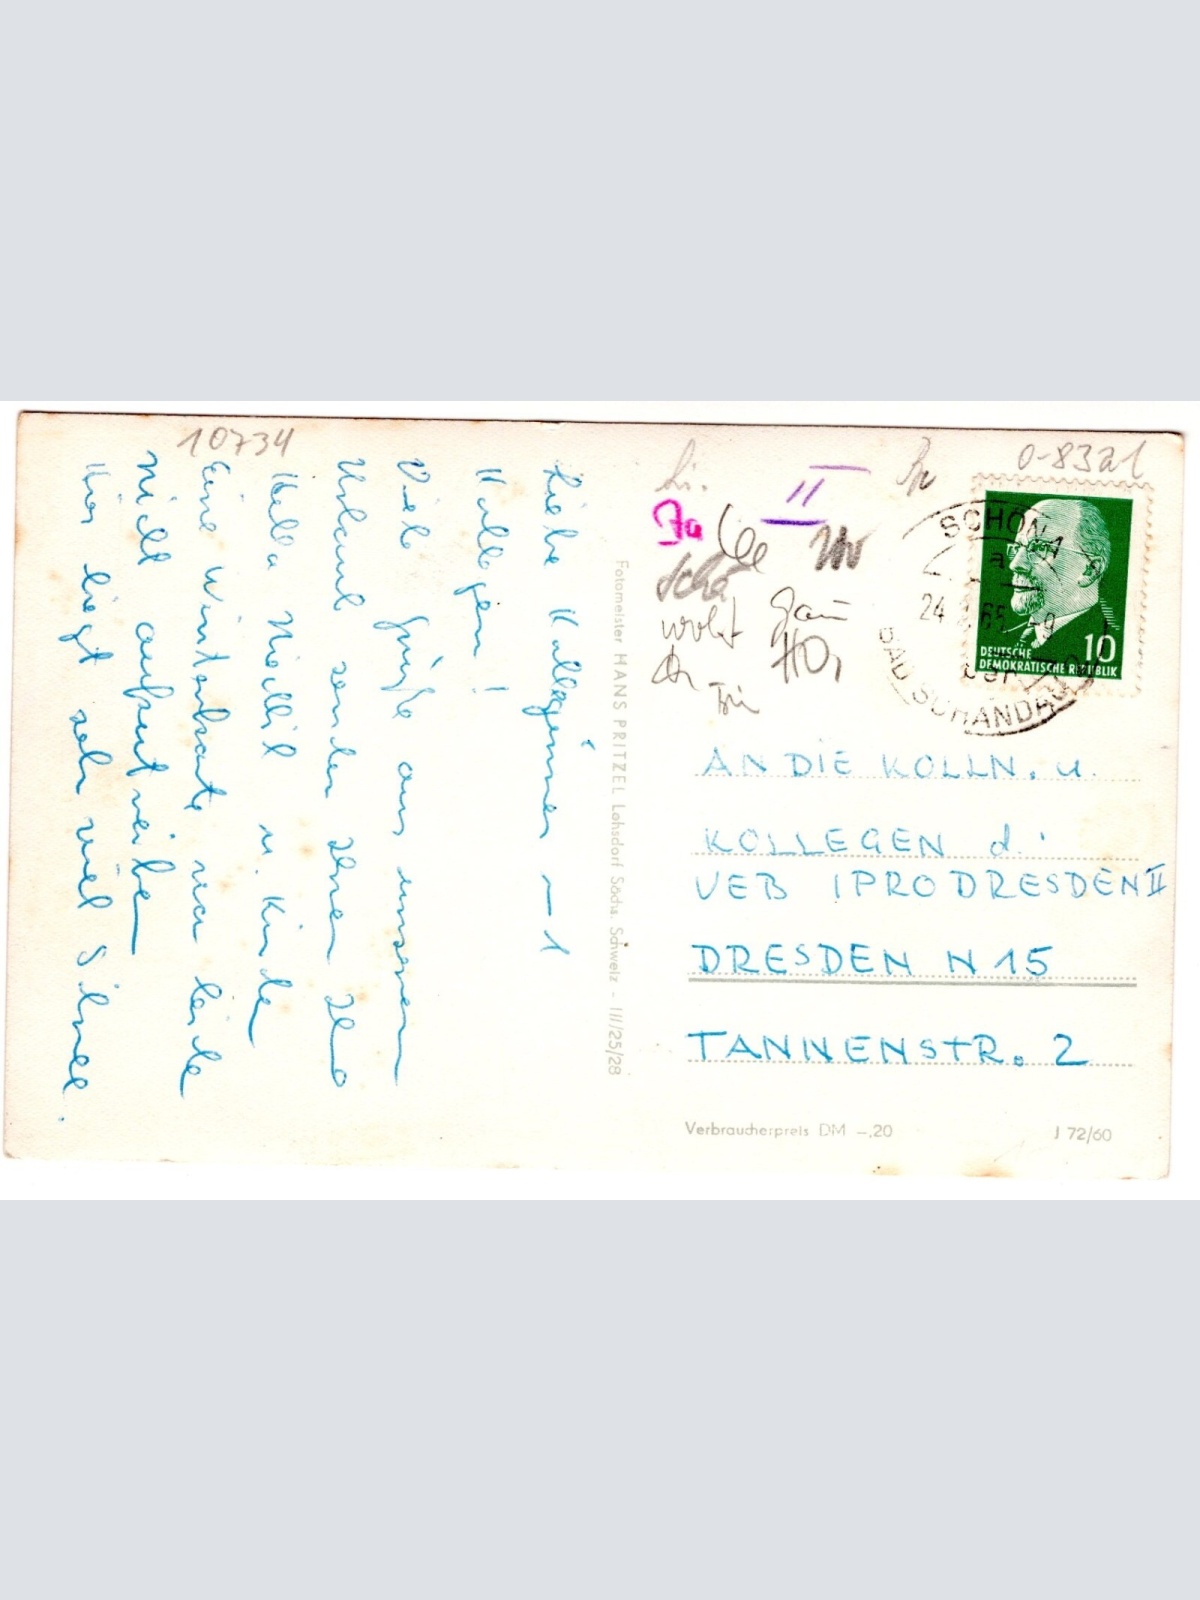 10734
Liebe Kolleginnen – 1
Kollegen!
Viele Grüße aus unserem
Urlaub senden Ihnen Ihre
u. Kinder
Eine Winterkarte war leider
nicht aufzutreiben
Hier liegt sehr viel Schnee.
Fotomeister HANS PRITZEL Lohsdorf Sächs. Schweiz – III/25/28
Li.
II
0-8321
Ja
Scha
HO,
SCHÖNA
a
24 65 -9
über
BAD SCHANDAU
10
DEUTSCHE
DEMOKRATISCHE REPUBLIK
AN DIE KOLLN. u.
KOLLEGEN d.
VEB IPRO DRESDEN II
DRESDEN N 15
TANNENSTR. 2
Verbraucherpreis DM –,20
J 72/60